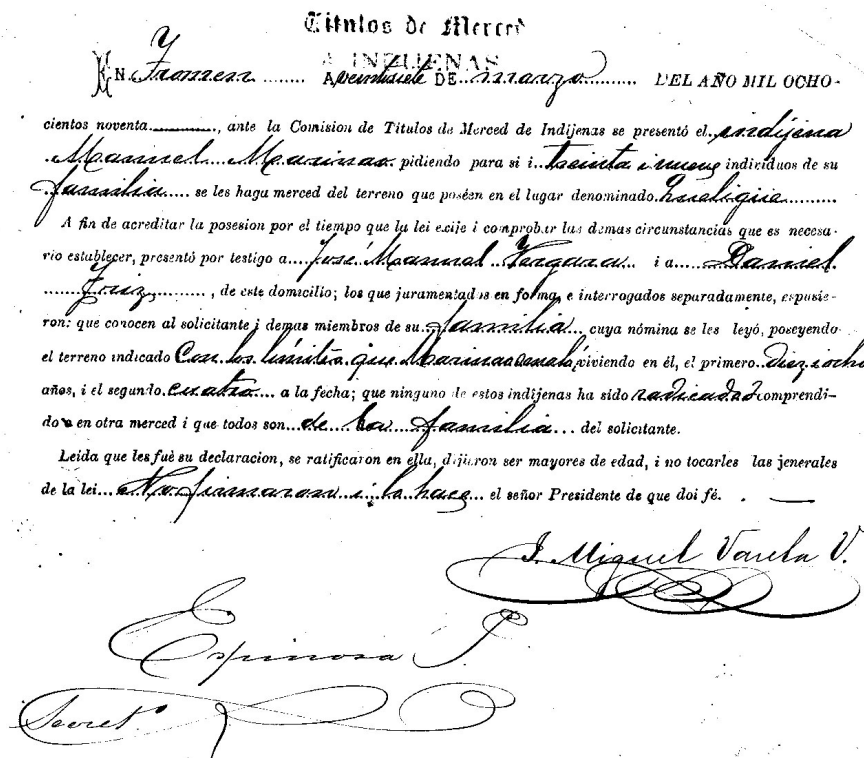 Títulos de Merced
A INDIJENAS
EN Tromen ........ A veintisiete DE marzo ........ DEL AÑO MIL OCHO-
cientos noventa ........, ante la Comision de Títulos de Merced de Indíjenas se presentó el indíjena
Manuel Marinao pidiendo para si i treinta i nueve individuos de su
familia ..... se les haga merced del terreno que poséen en el lugar denominado
A fin de acreditar la posesion por el tiempo que la lei exije i comprobar las demas circunstancias que es necesa-
rio establecer, presentó por testigo a José Manuel Vergara i a Daniel
Friz ........, de este domicilio; los que juramentados en forma, e interrogados separadamente, espusie-
ron: que conocen al solicitante i demas miembros de su familia ... cuya nómina se les leyó, poseyendo
el terreno indicado Con los límites que Marinao señaló, viviendo en él, el primero diez i ocho
años, i el segundo cuatro .... a la fecha; que ninguno de estos indíjenas ha sido radicado i comprendi-
do en otra merced i que todos son de la familia ... del solicitante.
Leida que les fué su declaracion, se ratificaron en ella, dijeron ser mayores de edad, i no tocarles las jenerales
de la lei ... No firmaron i lo hace ... el señor Presidente de que doi fé.
J. Miguel Varela V.
Espinosa P.
Secret.º